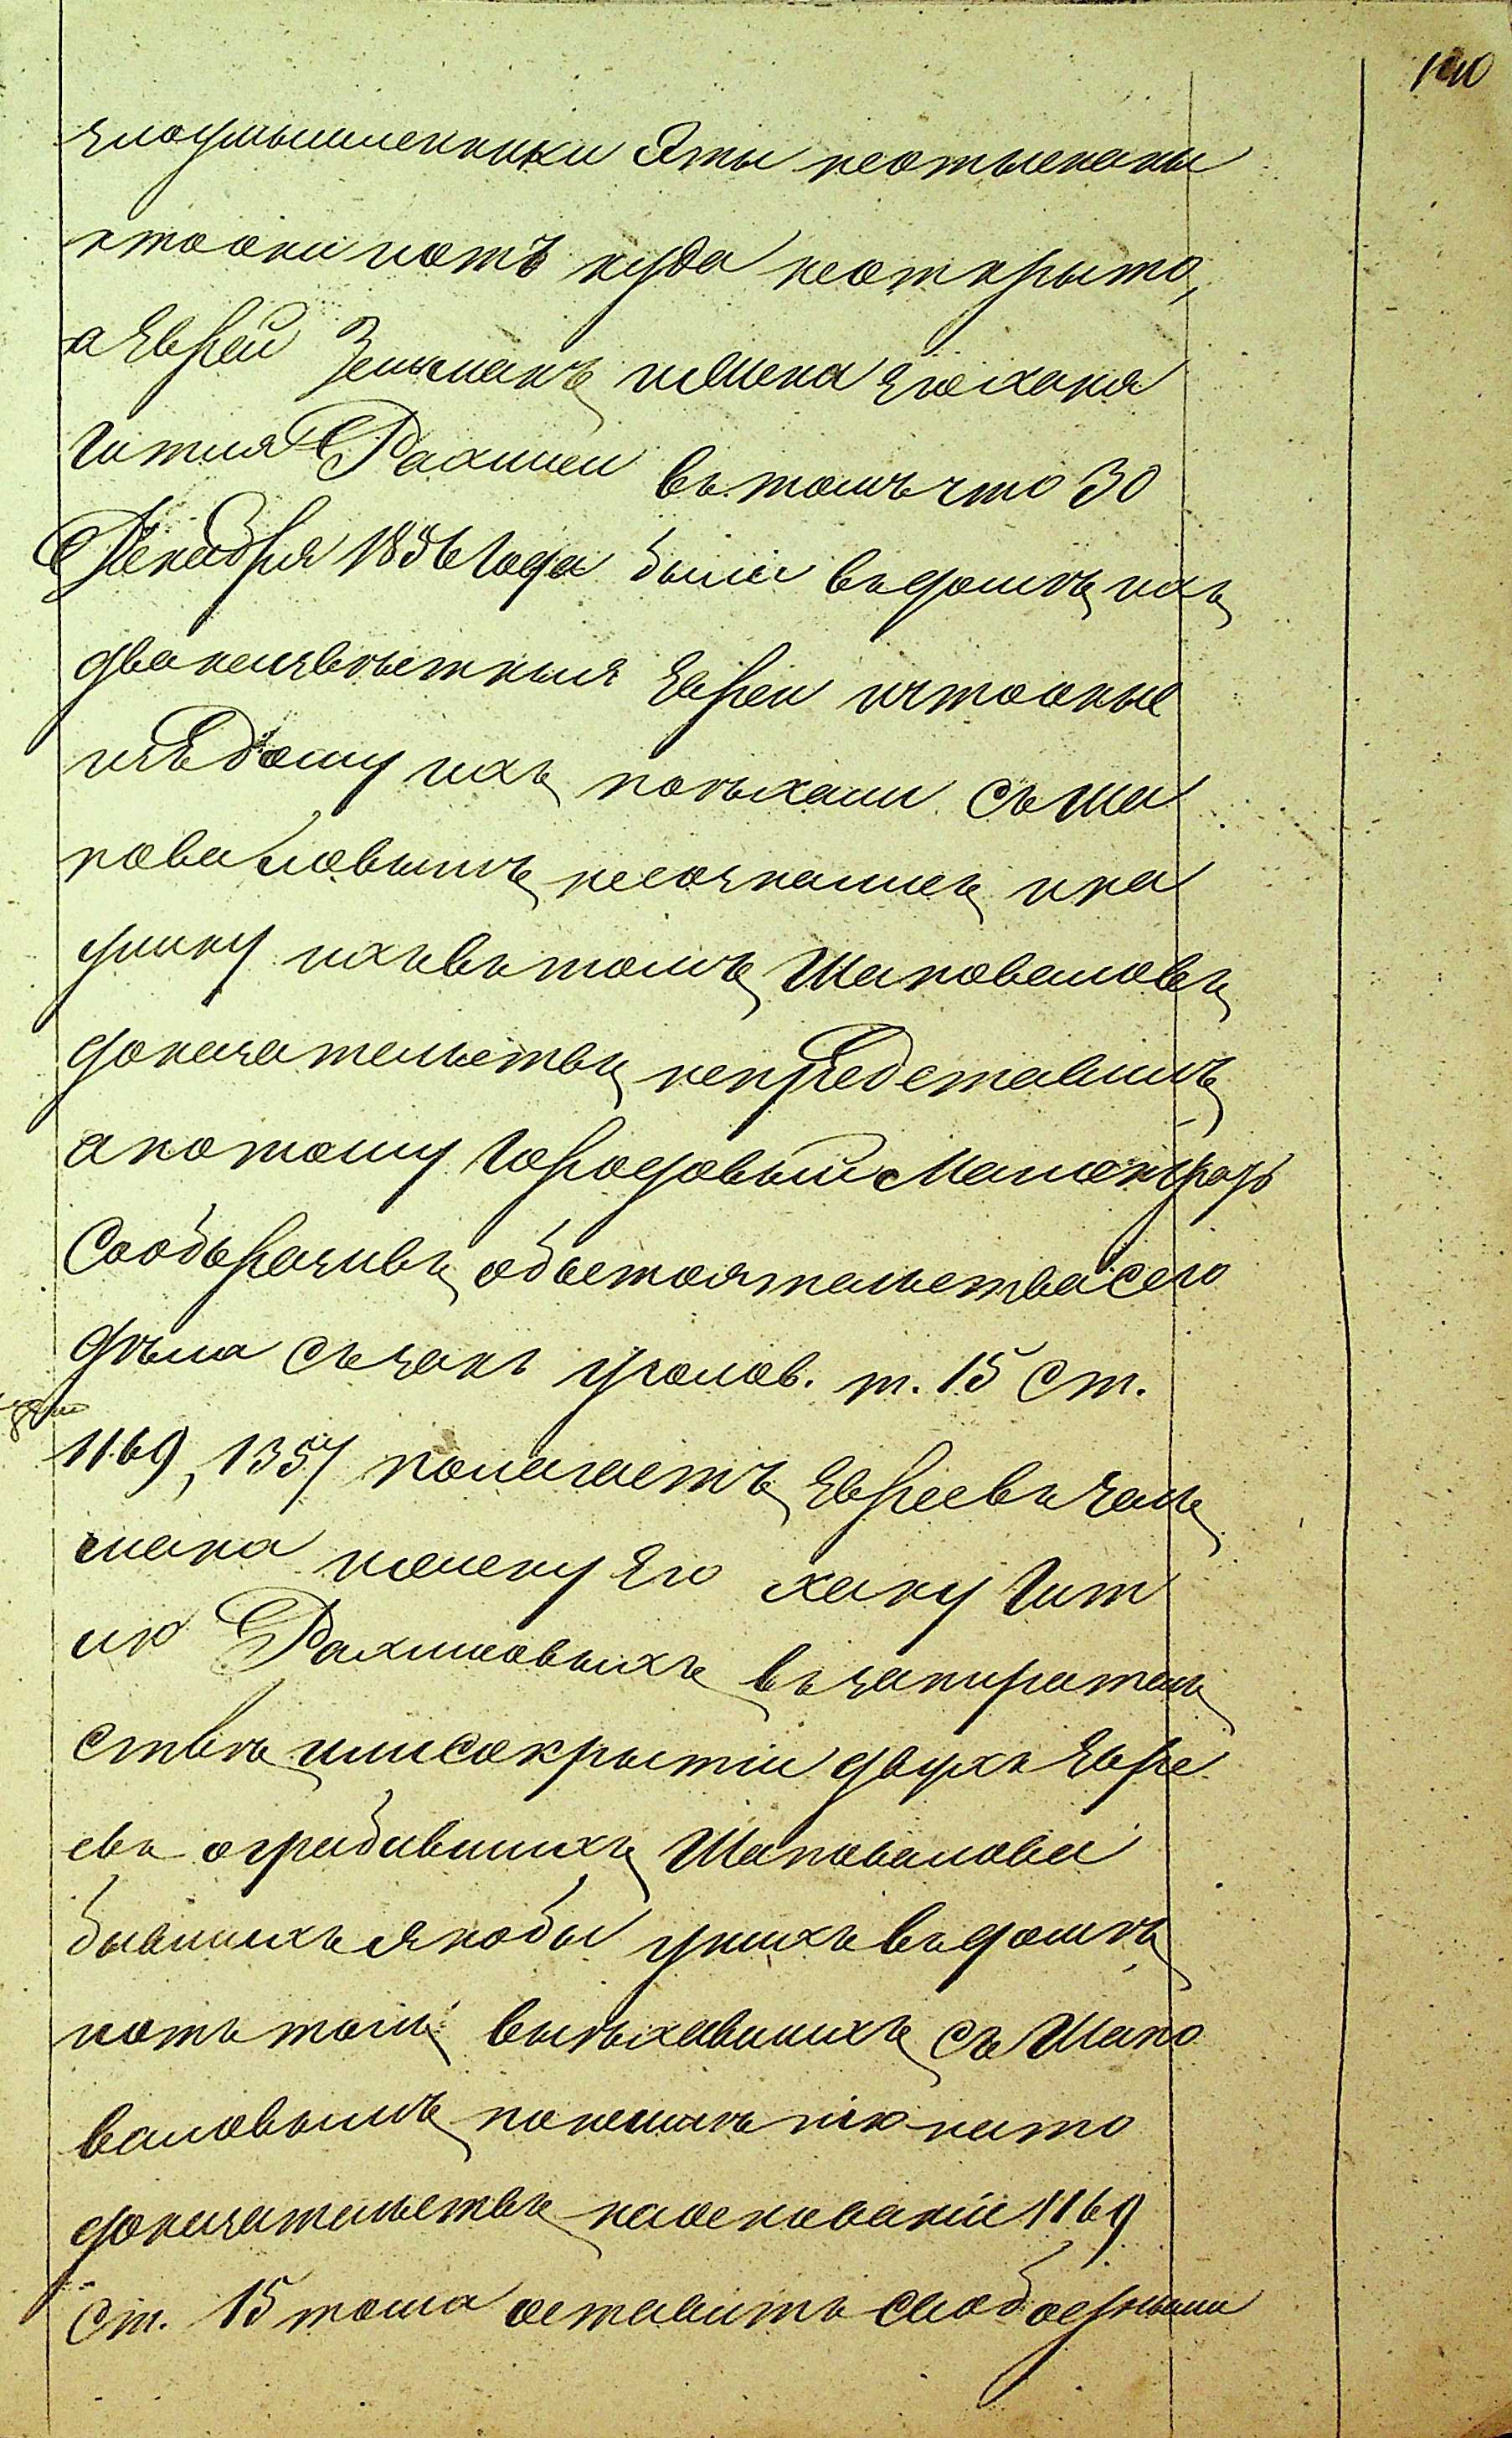 140
злоумышленники эти неотысканы
ктоони иотъ куда неоткрыто,
а Еврей Зельманъ ижена Егохана
Гитля Рахлины въ томъ что 30
Декабря 1836 Года были въ домѣ ихъ
дванеизвѣстныя Евреи ичтооные
изъ дому ихъ поѣхали съ Ша
поваловымъ несознались ина
улику ихъ въ томъ Шаповаловъ
доказательствъ непредставилъ
апотому Городовый Магистратъ
Сообразивъ обстоятельства сего
дѣла съ зак: уголов. т. 15 ст.
1169, 1357 полагаетъ Евреевъ Зель
мана ижену Его хану Гит
лю Рахлиновыхъ въ запиратель
ствѣ илисокрытіи двухъ Евре
евъ ограбившихъ Шаповалова
бывшихъ якобы унихъ въ домѣ
иотъ толь выѣхавшихъ съ Шапо
валовымъ понеимѣнію нато
доказательствъ наоснованіи 1169
ст. 15 тома оставить свободными